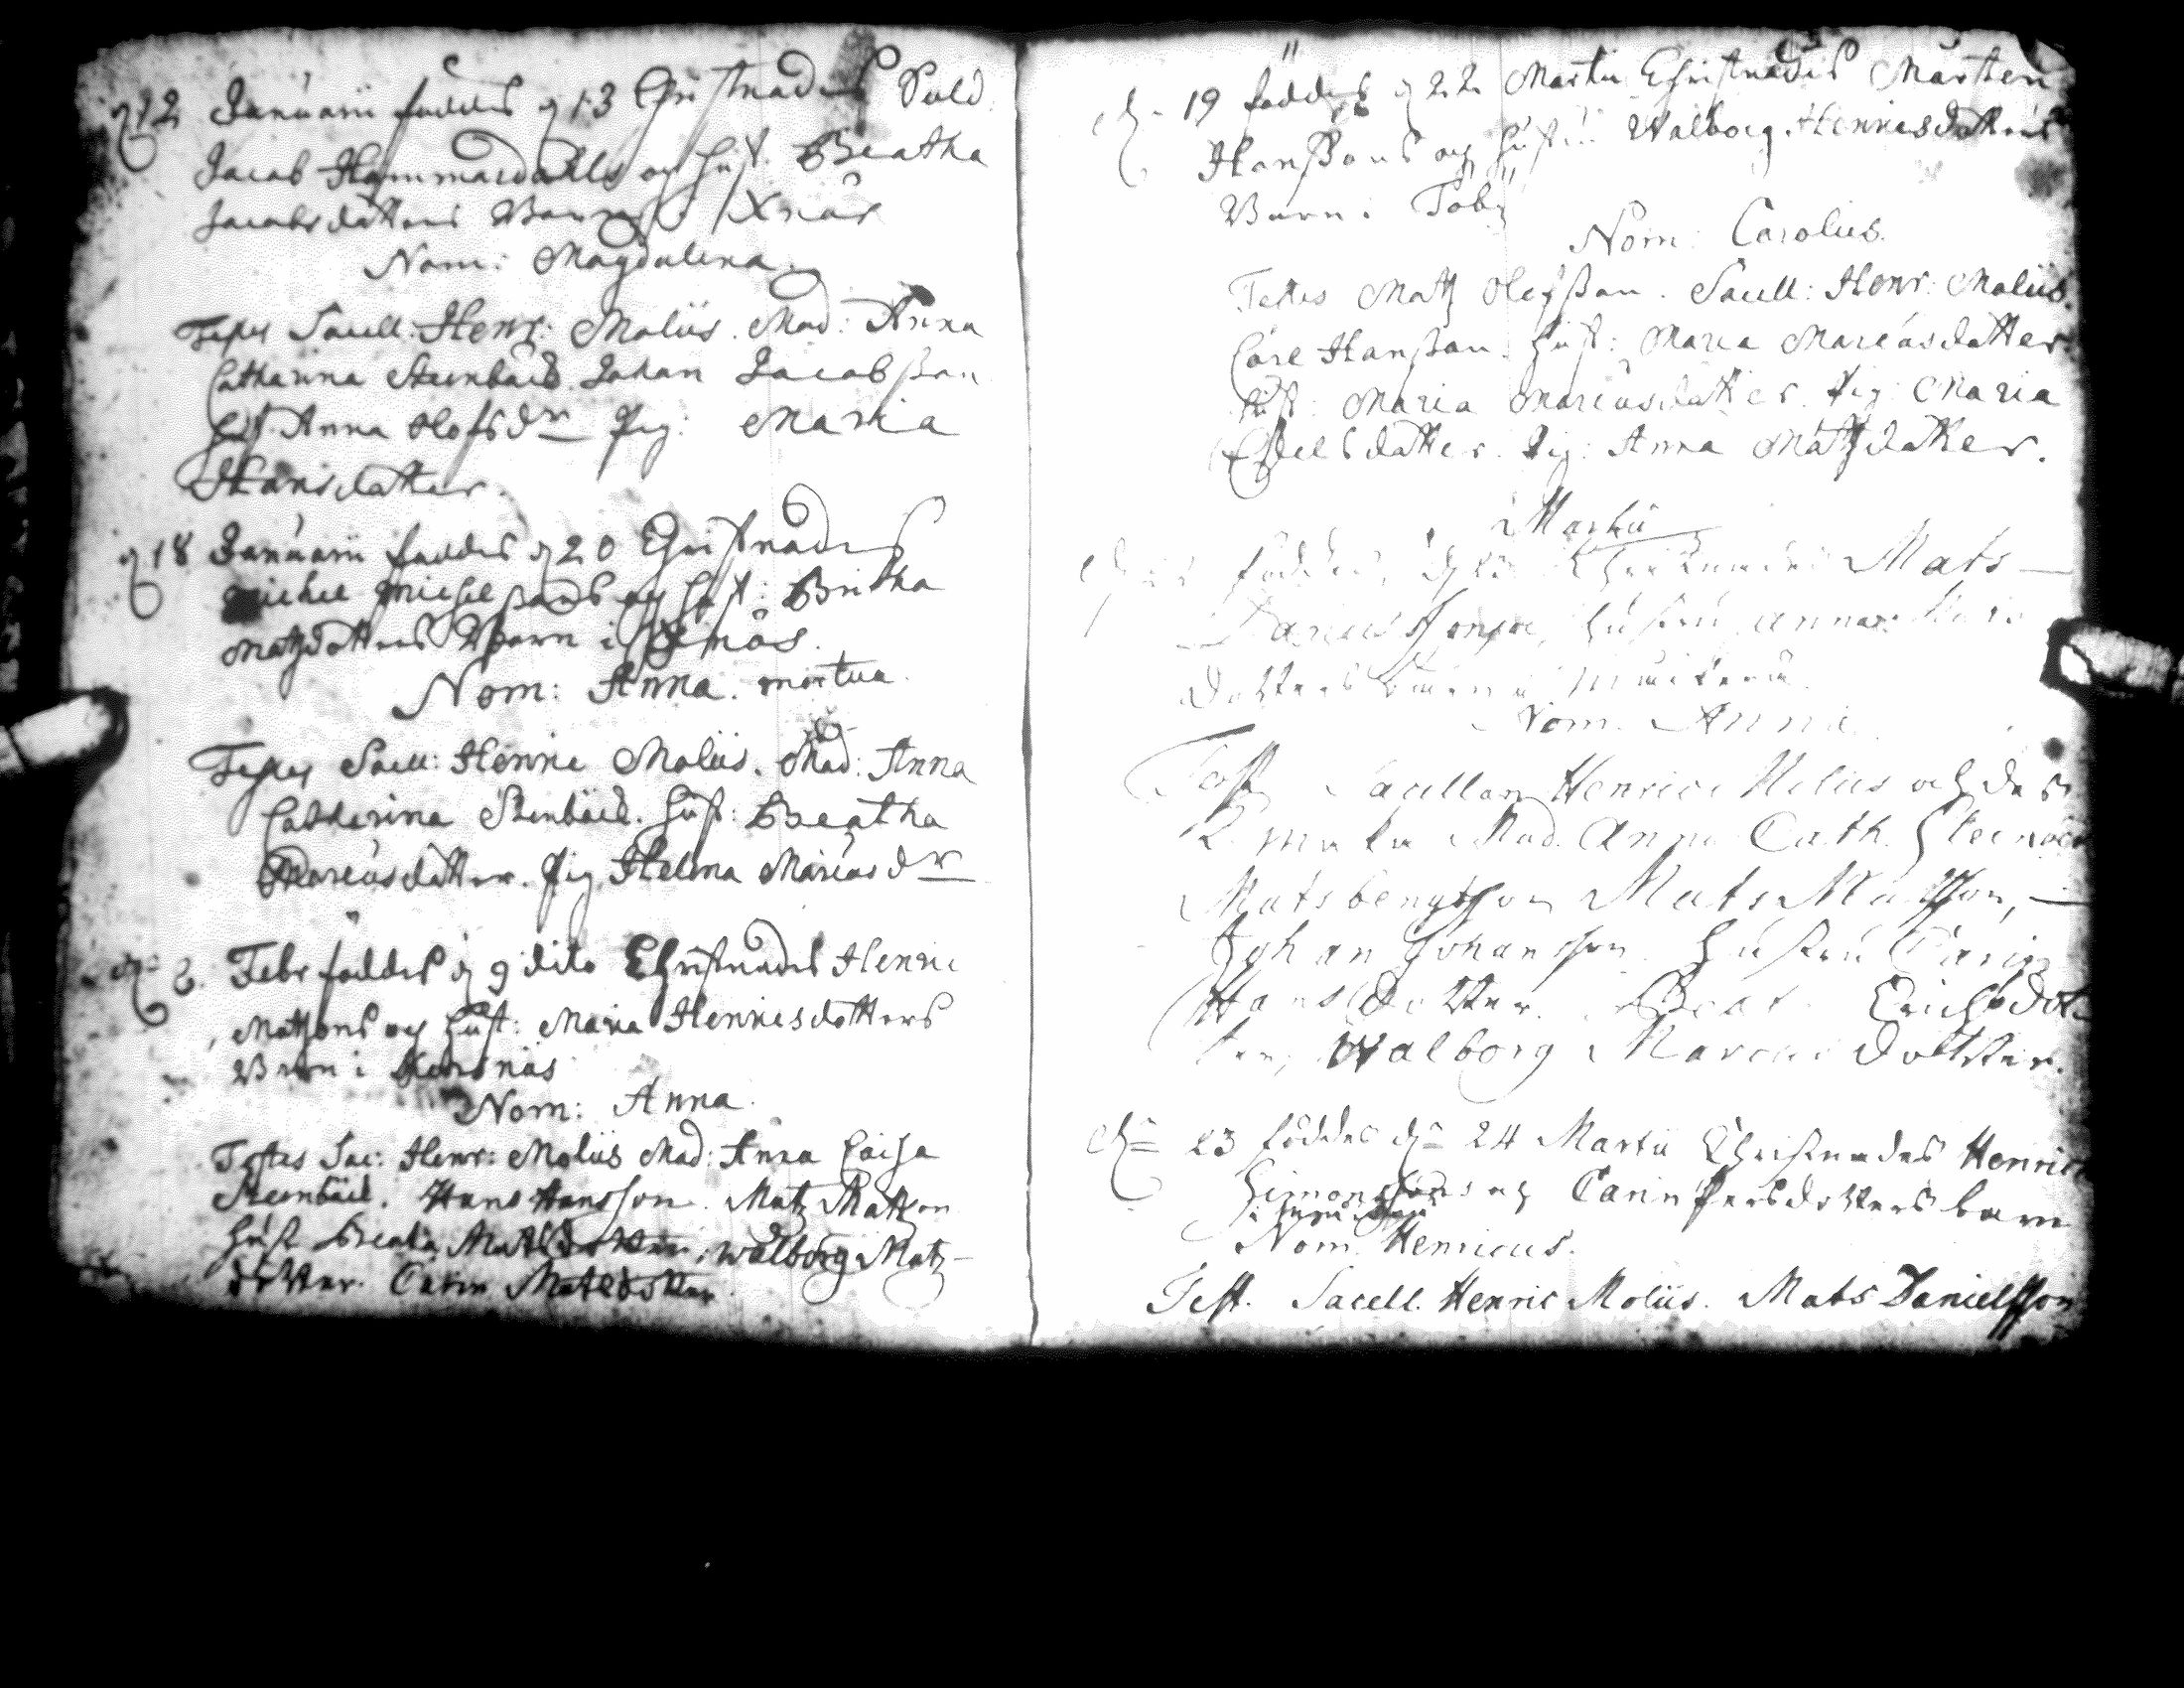 d 12 Januarii föddes d 13 Christnades Sold.
Jacob Hammardahls och Hust. Beatha
Jacobsdotters Barn i
Nom: Magdalena.
Testes Sacell: Henr: Moliis. Mad: Anna
Catharina Steenbäck. Johan Jacobsson
Hust. Anna Olofs dr Pig: Maria
Hansdotter.
d 18 Januarii föddes d 20 Christnades
Michel Michelssons och Hust: Britha
Matzdotters Barn i
Nom: Anna. mortua.
Testes Sacell: Henric Moliis. Mad: Anna
Catharina Stenbäck. Hust: Beatha
Marcusdotter. Pig. Helena Marcus dr
dn 8. Febr föddes d 9 dito Christnades Henric
Matsons och Hust: Maria Henricsdotters
Barn i
Nom: Anna.
Testes Sac: Henr: Moliis Mad: Anna Caisa
Steenbäck. Hans Hansson. Matz Matzon
Hust Beata Matsdotter, Walborg Matz-
dotter. Carin Matsdotter.
dn 19 föddes d 22 Martii Christnades Mårten
Hanssons och Hustru Walborg Henricsdotters
Barn i Töby
Nom: Carolus.
Testes Matz Olofsson. Sacell: Henr: Moliis.
Carl Hansson. Hust: Maria Marcusdotter
Hust: Maria Marcusdotter. Pig: Maria
dotter. Pig: Anna Matzdotter.
Martii
föddes, Christnades Mats
Hustru Anna
dotters barn i
Nom. Anna
Test Sacellan Henric Moliis och des
Maka Mad. Anna Cath. Steenbäck
Mats bengtsson Mats Matsson,
Johan Johansson. Hustru Carin
Hans Dotter. Beat Erichs dot
ter, Walborg Marcus dotter.
dn 23 föddes dn 24 Martii Christnades Henrich
Simonssons och Carin Persdotters barn
Nom. Henricus.
Test. Sacell. Henric Moliis. Mats Danielsson